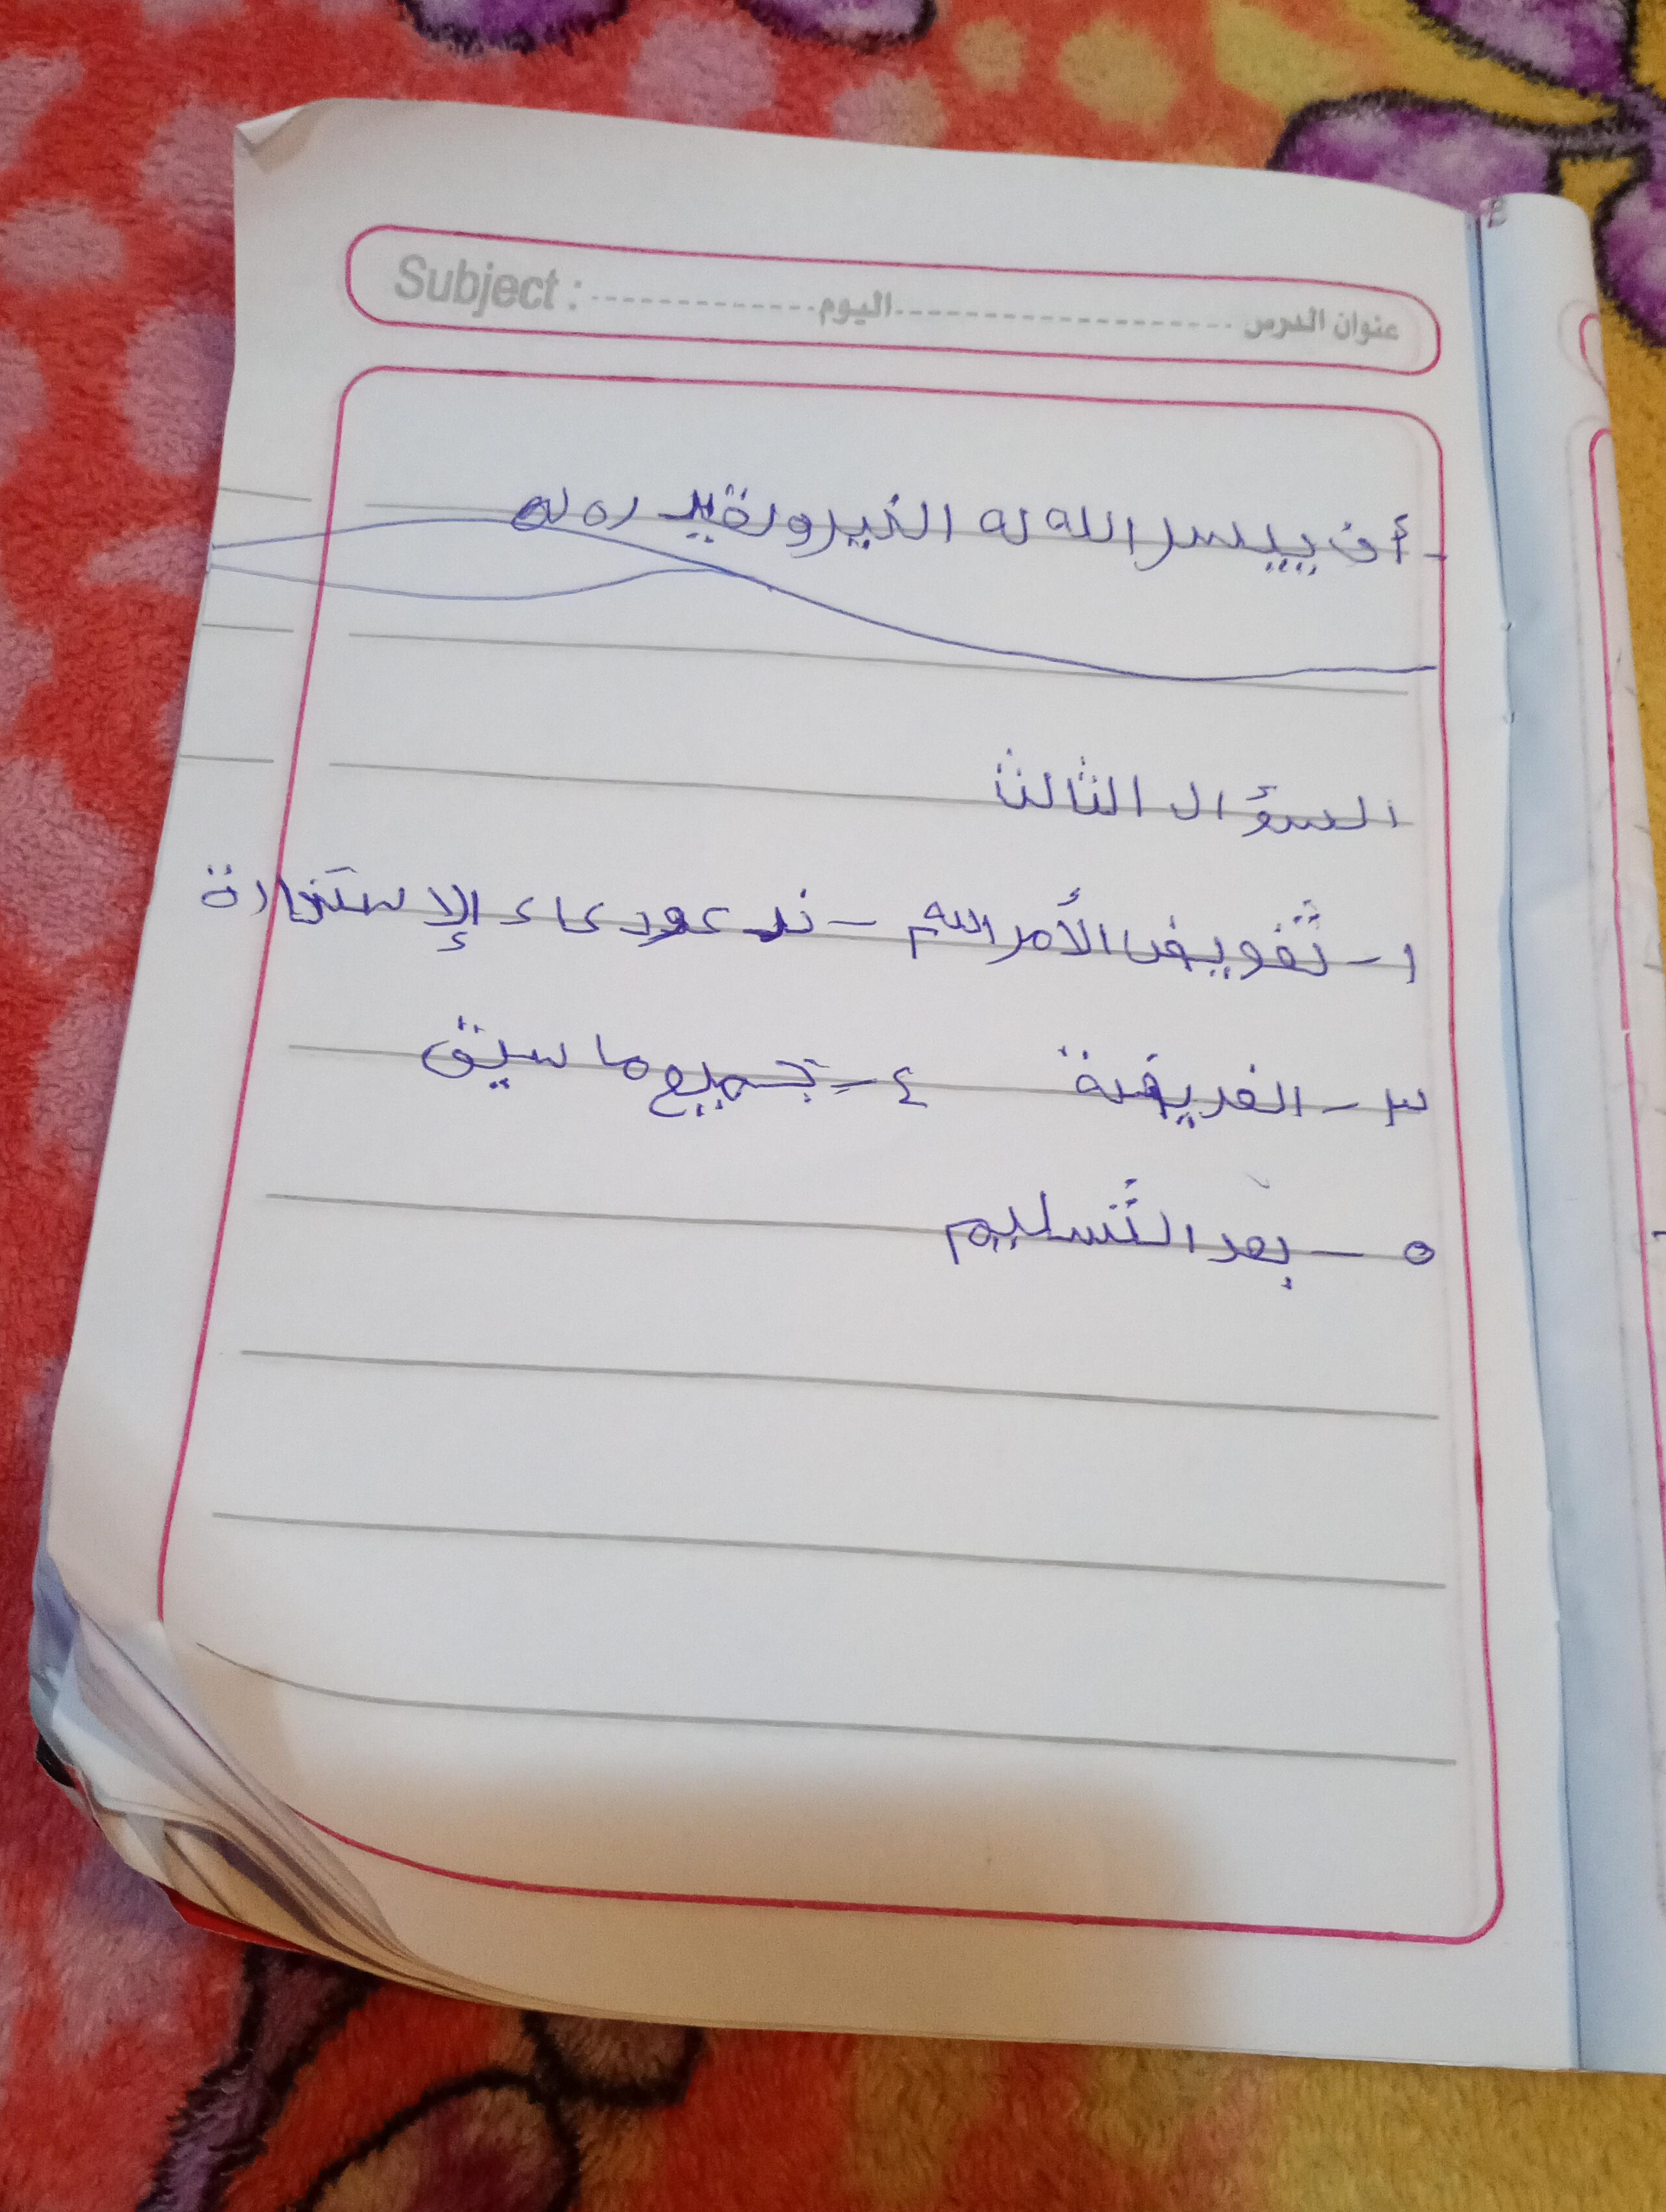 عنوان الدرس ........ اليوم ........ Subject :
- أن ييسر الله له الخير ويقدره له
السؤال الثالث
١- تفويض الأمر الله م - ندعو دعاء الإستخارة
٣- الفريضة ٤- جميع ما سبق
٥- بعد التسليم